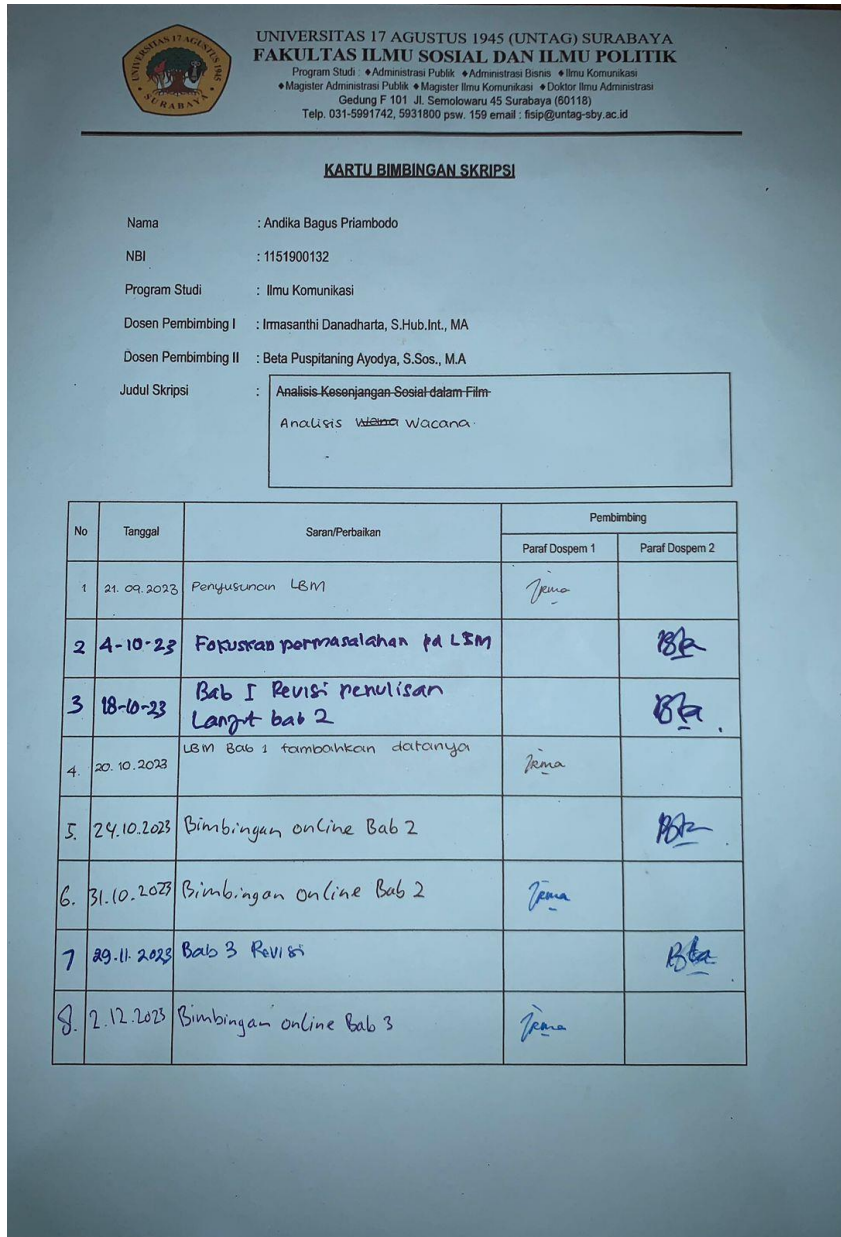 UNIVERSITAS 17 AGUSTUS 1945
SURABAYA
UNIVERSITAS 17 AGUSTUS 1945 (UNTAG) SURABAYA
FAKULTAS ILMU SOSIAL DAN ILMU POLITIK
Program Studi : ◆Administrasi Publik ◆Administrasi Bisnis ◆Ilmu Komunikasi
◆Magister Administrasi Publik ◆Magister Ilmu Komunikasi ◆Doktor Ilmu Administrasi
Gedung F 101 Jl. Semolowaru 45 Surabaya (60118)
Telp. 031-5991742, 5931800 psw. 159 email : fisip@untag-sby.ac.id
KARTU BIMBINGAN SKRIPSI
Nama : Andika Bagus Priambodo
NBI : 1151900132
Program Studi : Ilmu Komunikasi
Dosen Pembimbing I : Irmasanthi Danadharta, S.Hub.Int., MA
Dosen Pembimbing II : Beta Puspitaning Ayodya, S.Sos., M.A
Judul Skripsi : Analisis Kesenjangan Sosial dalam Film
Analisis Wacana
No Tanggal Saran/Perbaikan Pembimbing
Paraf Dospem 1 Paraf Dospem 2
1 21.09.2023 Penyusunan LBM Irma
2 4-10-23 Fokuskan permasalahan pd LBM Bta
3 18-10-23 Bab I Revisi penulisan
Lanjut bab 2 Bta
4. 20.10.2023 LBM Bab 1 tambahkan datanya Irma
5. 24.10.2023 Bimbingan online Bab 2 Bta
6. 31.10.2023 Bimbingan online Bab 2 Irma
7 29.11.2023 Bab 3 Revisi Bta
8. 2.12.2023 Bimbingan online Bab 3 Irma